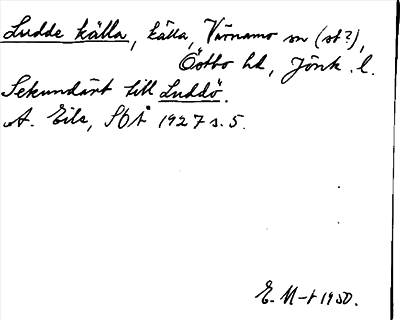 Ludde källa, källa, Värnamo sn (st?),
Östbo hd, Jönk. l.
Sekundärt till Luddö.
A. Eils, SOÅ 1927 s. 5.
E. M-t 1950.